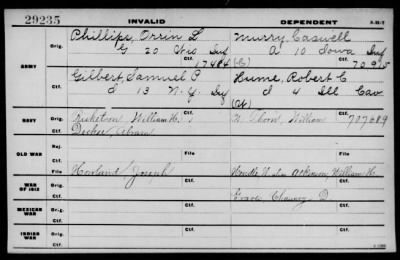 29235 INVALID DEPENDENT
ARMY Orig. Phillips, Orrin L Murry, Caswell
G 20 Inf A 10 Iowa Inf
Ctf. 17484 Ctf.
Orig. Gilbert, Samuel P Hume, Robert C
d 13 N.Y. Inf d 4 Ill Cav
Ctf. Ctf.
NAVY Orig. Ricketson William H. Thorn, William 707689
Ctf. Decker, Abram
OLD WAR Rej.
Ctf. File File
WAR OF 1812 Orig. Howland Joseph Atkinson, William H.
Ctf. Graves, Chauncy D.
MEXICAN WAR Orig.
Ctf. Ctf.
INDIAN WAR Orig.
Ctf. Ctf.